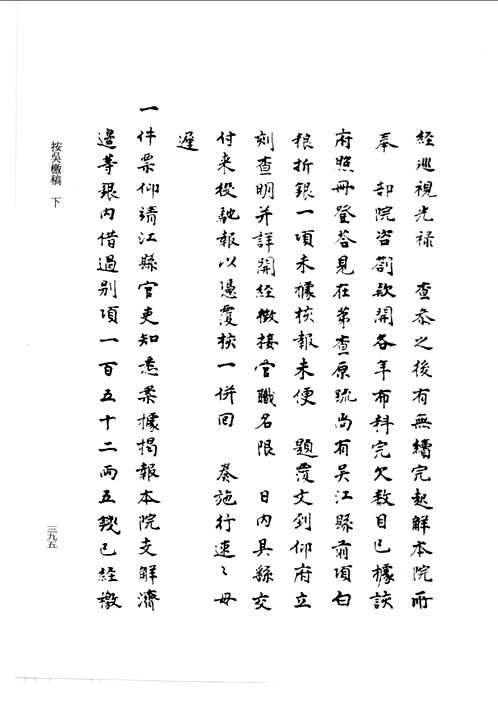 經巡視光祿　查叅之後有無續完起解本院所
奉　部院咨劄欵開各年布料完欠数目已據該
府照冊登荅見在第查原疏尚有吴江縣前項白
粮折銀一項未據核報未便　題覆文到仰府立
刻查明并詳開經徵接官職名限　日内具繇交
付来役馳報以憑覆核一併回　奏施行速〻毋
遲
一件票仰靖江縣官吏知悉案據揭報本院支解濟
邊等銀内借過别項一百五十二兩五錢已經檄
按吳檄稿　下
三九五